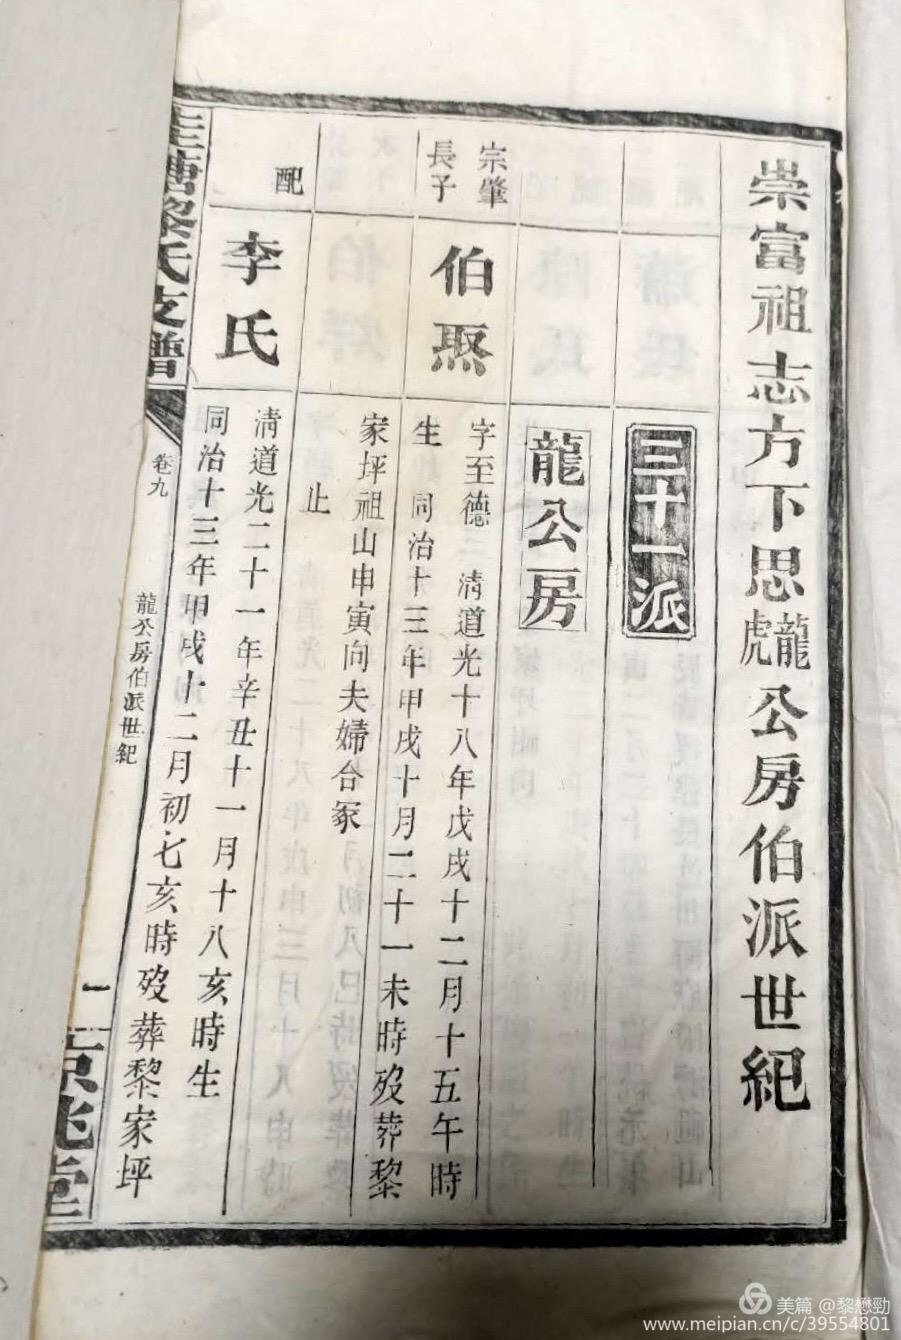 崇富祖志方下思龍虎公房伯派世紀
三十一派
龍公房
宗肇
長子
伯焣
字至德 清道光十八年戊戌十二月十五午時
生 同治十三年甲戌十月二十一未時歿葬黎
家坪祖山申寅向夫婦合冢
止
配
李氏
清道光二十一年辛丑十一月十八亥時生
同治十三年甲戌十二月初七亥時歿葬黎家坪
塘黎氏支譜
卷九
龍公房伯派世紀
一
京兆堂
美篇 @黎懋勁
www.meipian.cn/c/39554801